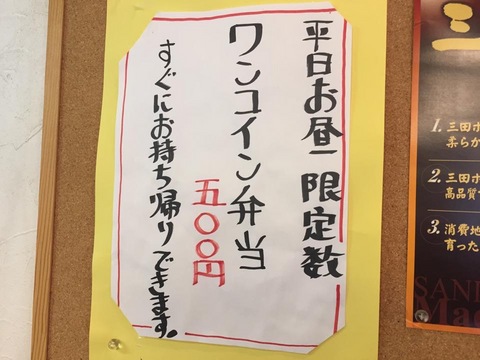 平日お昼 限定数
ワンコイン弁当
五〇〇円
すぐにお持ち帰りできます。
三
1. 三田ポ
柔らか
2. 三田ポ
高品質
3. 消費地
育った
SAN
Ma